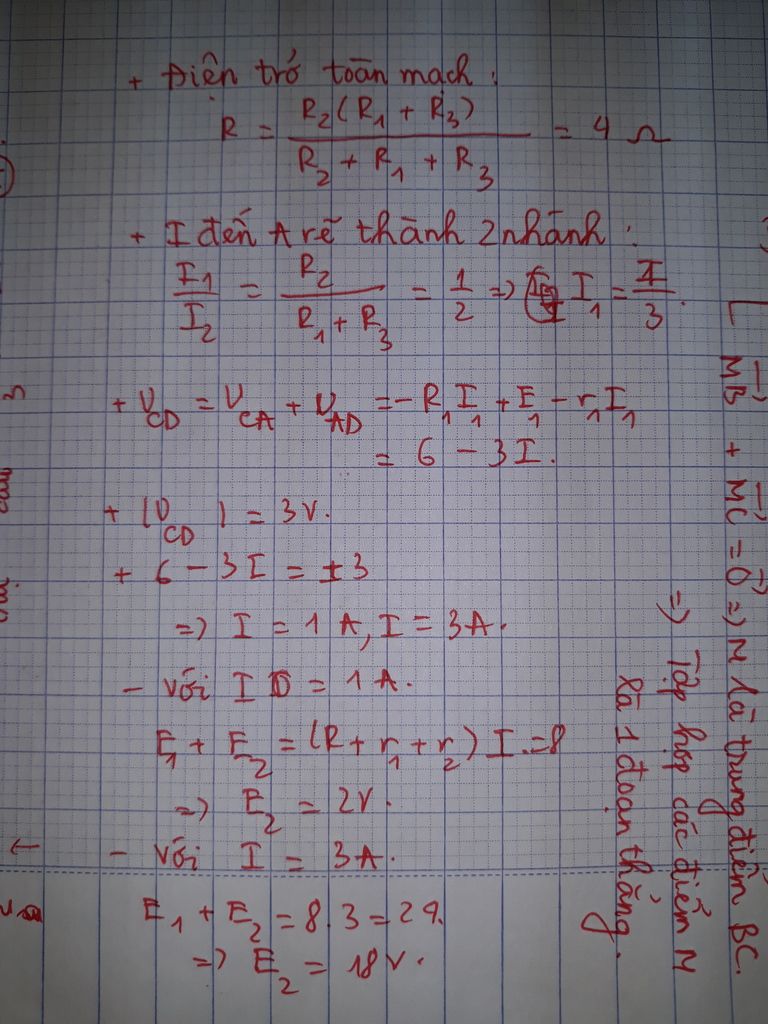 + Điện trở toàn mạch :
R = R₂(R₁ + R₃) / R₂ + R₁ + R₃ = 4 Ω
+ I đến A rẽ thành 2 nhánh :
I₁ / I₂ = R₂ / R₁ + R₃ = 1/2 => I₁ = I/3.
+ U_CD = U_CA + U_AD = - R₁I₁ + E₁ - r₁I₁
= 6 - 3I.
+ |U_CD| = 3V.
+ 6 - 3I = ±3
=> I = 1A, I = 3A.
- Với I = 1A.
E₁ + E₂ = (R + r₁ + r₂) I = 8
=> E₂ = 2V.
- Với I = 3A.
E₁ + E₂ = 8.3 = 24.
=> E₂ = 18V.
MB⃗ + MC⃗ = 0⃗ => M là trung điểm BC.
=> Tập hợp các điểm M
là 1 đoạn thẳng.